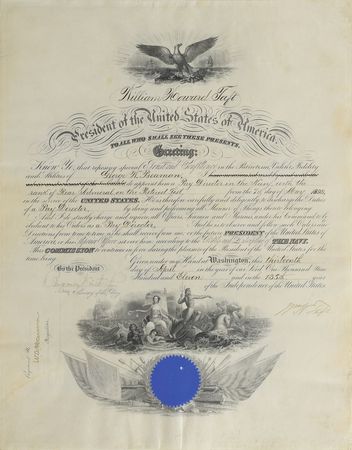 William Howard Taft
President of the United States of America.
TO ALL WHO SHALL SEE THESE PRESENTS,
Greeting:
Know Ye, that reposing special Trust and Confidence in the Patriotism, Valor, Fidelity
and Abilities of George W. Beaman, I
to appoint him a Pay Director in the Navy, with the
rank of Rear Admiral, on the Retired List from the
in the service of the UNITED STATES. He is therefore carefully and diligently to discharge the Duties
of a Pay Director, by doing and performing all manner of things thereunto belonging.
And I do strictly charge and require all Officers, Seamen and Marines, under his Command to be
obedient to his Orders as a Pay Director. And he is to observe and follow such Orders and
Directions from time to time as he shall receive from me, or the future PRESIDENT of the United States of
America, or his Superior Officer set over him, according to the Rules and Discipline of THE NAVY.
This COMMISSION to continue in force during the pleasure of the President of the United States for the
time being.
Given under my Hand at Washington, this thirteenth
day of April in the year of our Lord One Thousand Nine
Hundred and Eleven and in the 135th
of the Independence of the United States.
By the President
Wm H Taft